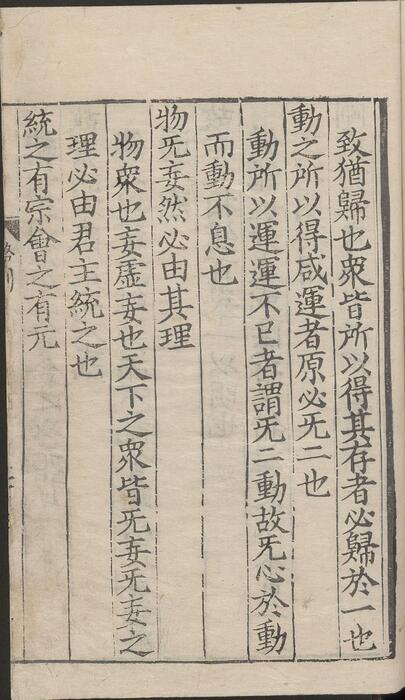 致猶歸也衆皆所以得其存者必歸於一也
動之所以得咸運者原必旡二也
動所以運運不已者謂旡二動故旡心於動
而動不息也
物旡妄然必由其理
物衆也妄虛妄也天下之衆皆旡妄旡妄之
理必由君主統之也
統之有宗會之有元